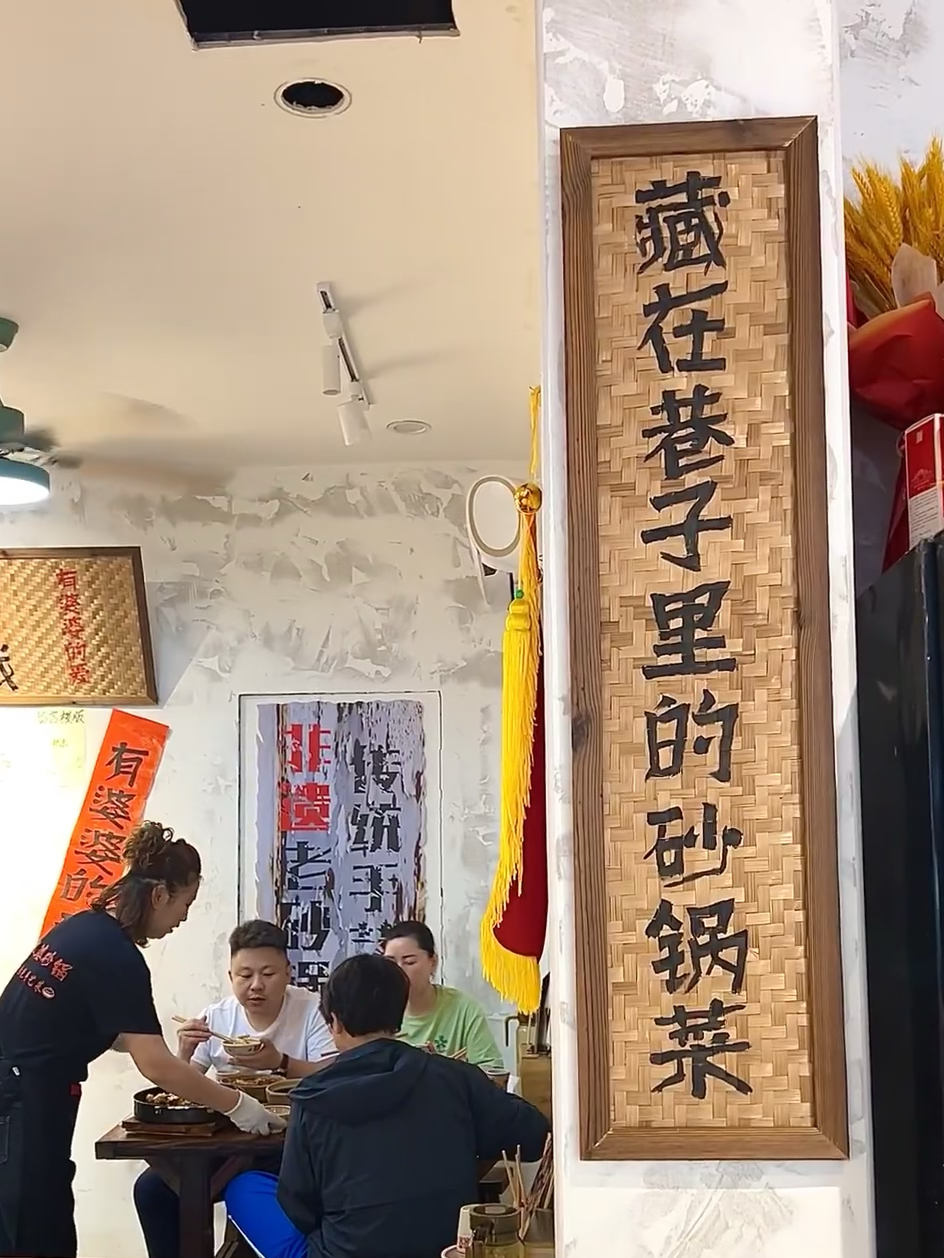 藏在巷子里的砂锅菜
传统手
非遗老砂锅
有婆婆的爱
有婆婆的